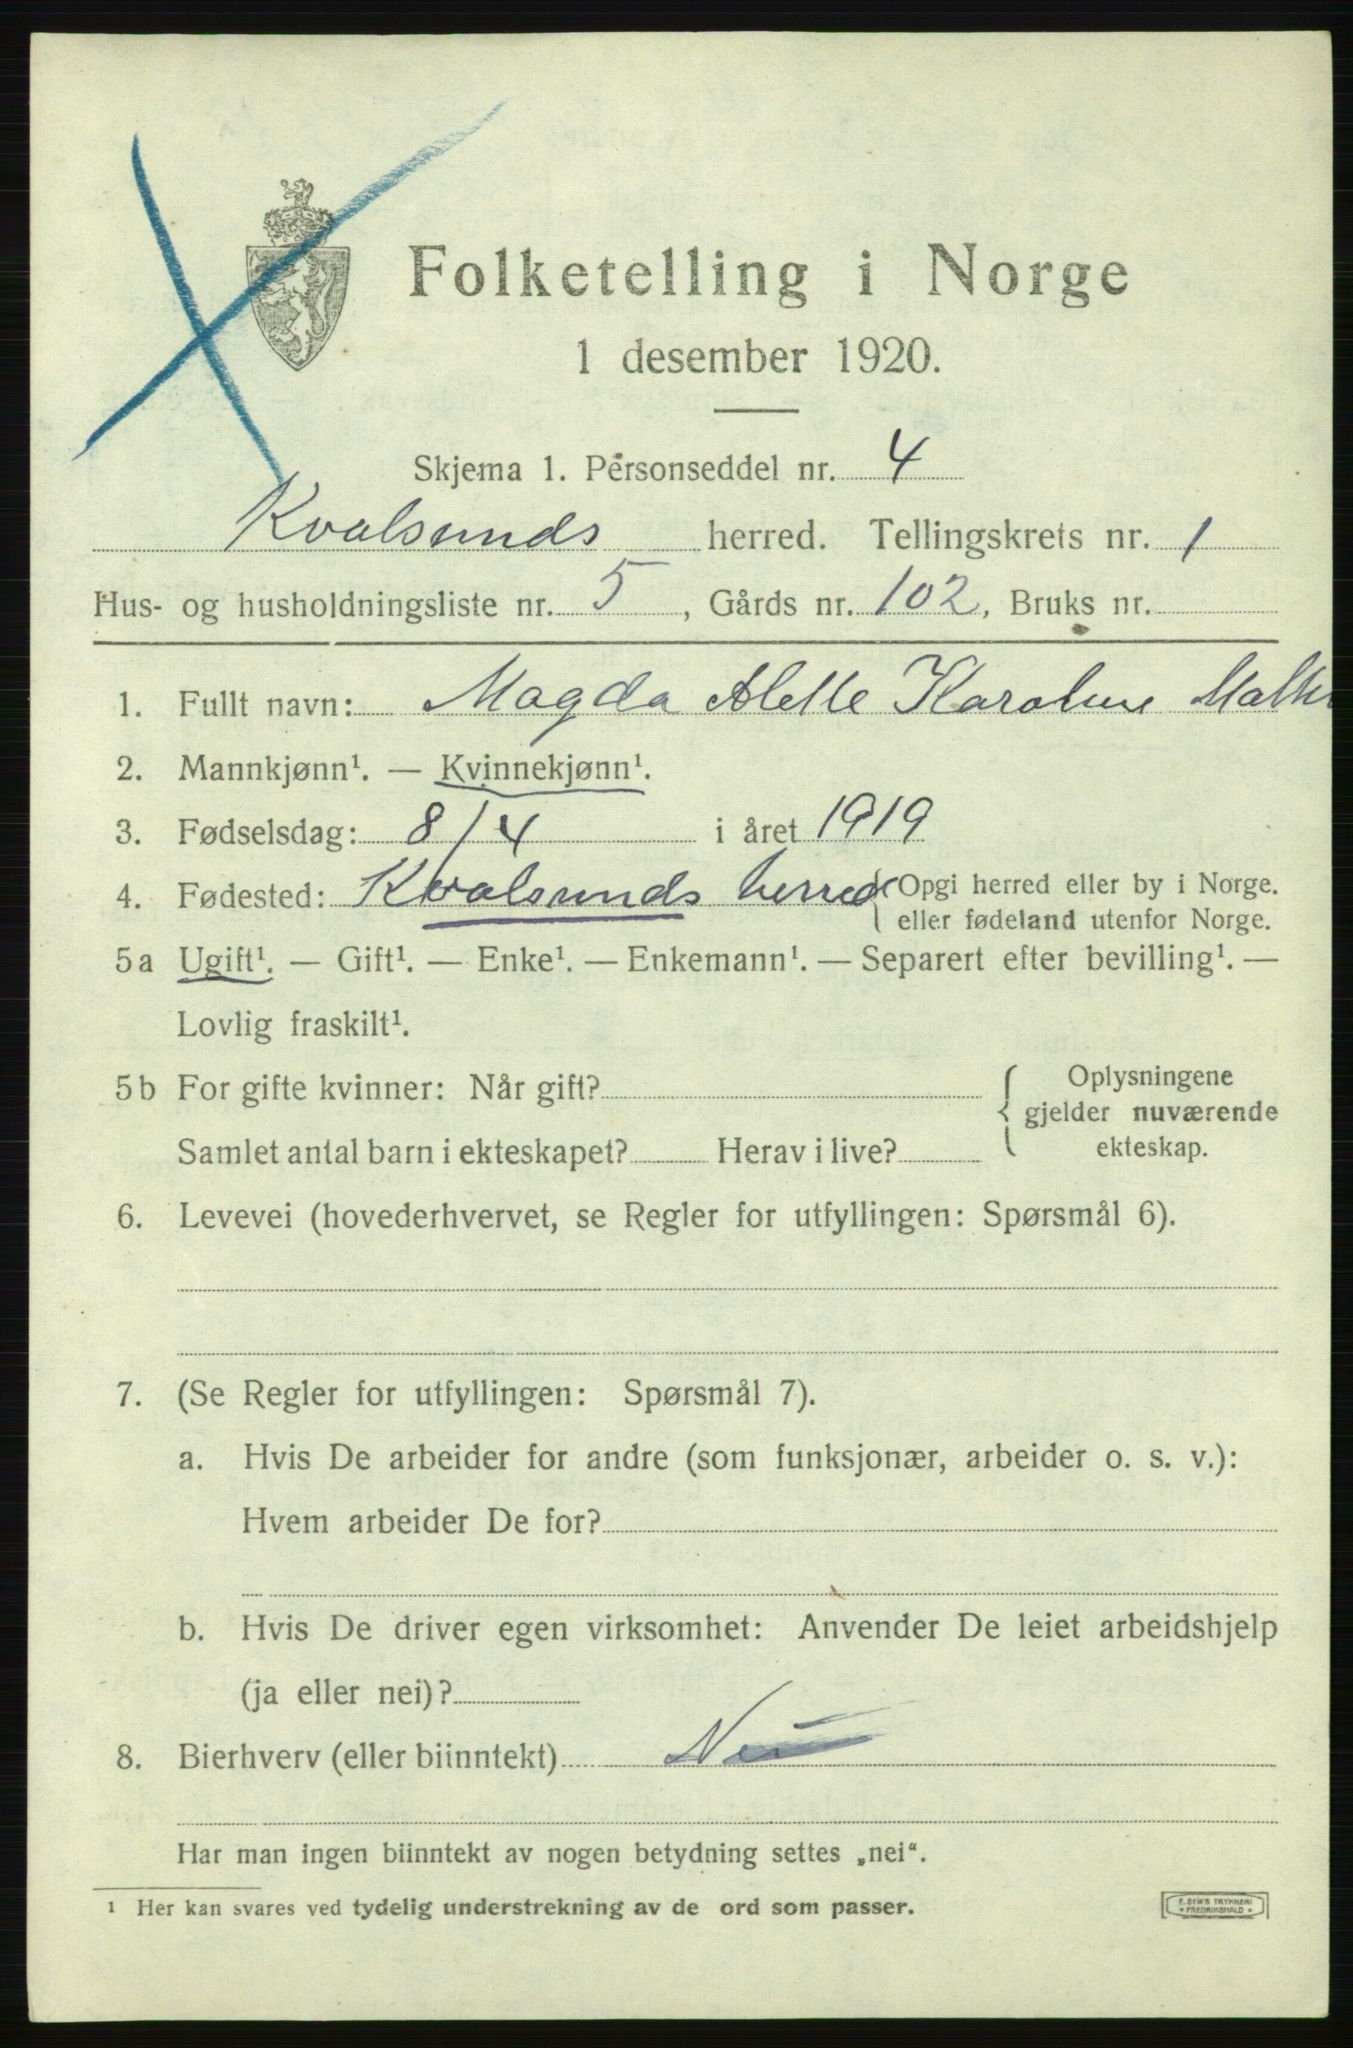 Folketelling i Norge
1 desember 1920.
Skjema 1. Personseddel nr. 4
Kvalsunds herred. Tellingskrets nr. 1
Hus- og husholdningsliste nr. 5, Gårds nr. 102, Bruks nr.
1. Fullt navn: Magda Alette Karoline
2. Mannkjønn¹. — Kvinnekjønn¹.
3. Fødselsdag: 8/4 i året 1919
4. Fødested: Kvalsunds herred { Opgi herred eller by i Norge.
eller fødeland utenfor Norge.
5a Ugift¹. — Gift¹. — Enke¹. — Enkemann¹. — Separert efter bevilling¹. —
Lovlig fraskilt¹.
5b For gifte kvinner: Når gift?
Samlet antal barn i ekteskapet? Herav i live?
{ Oplysningene
gjelder nuværende
ekteskap.
6. Levevei (hovederhvervet, se Regler for utfyllingen: Spørsmål 6).
7. (Se Regler for utfyllingen: Spørsmål 7).
a. Hvis De arbeider for andre (som funksjonær, arbeider o. s. v.):
Hvem arbeider De for?
b. Hvis De driver egen virksomhet: Anvender De leiet arbeidshjelp
(ja eller nei)?
8. Bierhverv (eller biinntekt) Nei
Har man ingen biinntekt av nogen betydning settes „nei“.
¹ Her kan svares ved tydelig understrekning av de ord som passer.
E. SEM'S TRYKKERI
* FREDRIKSHALD *